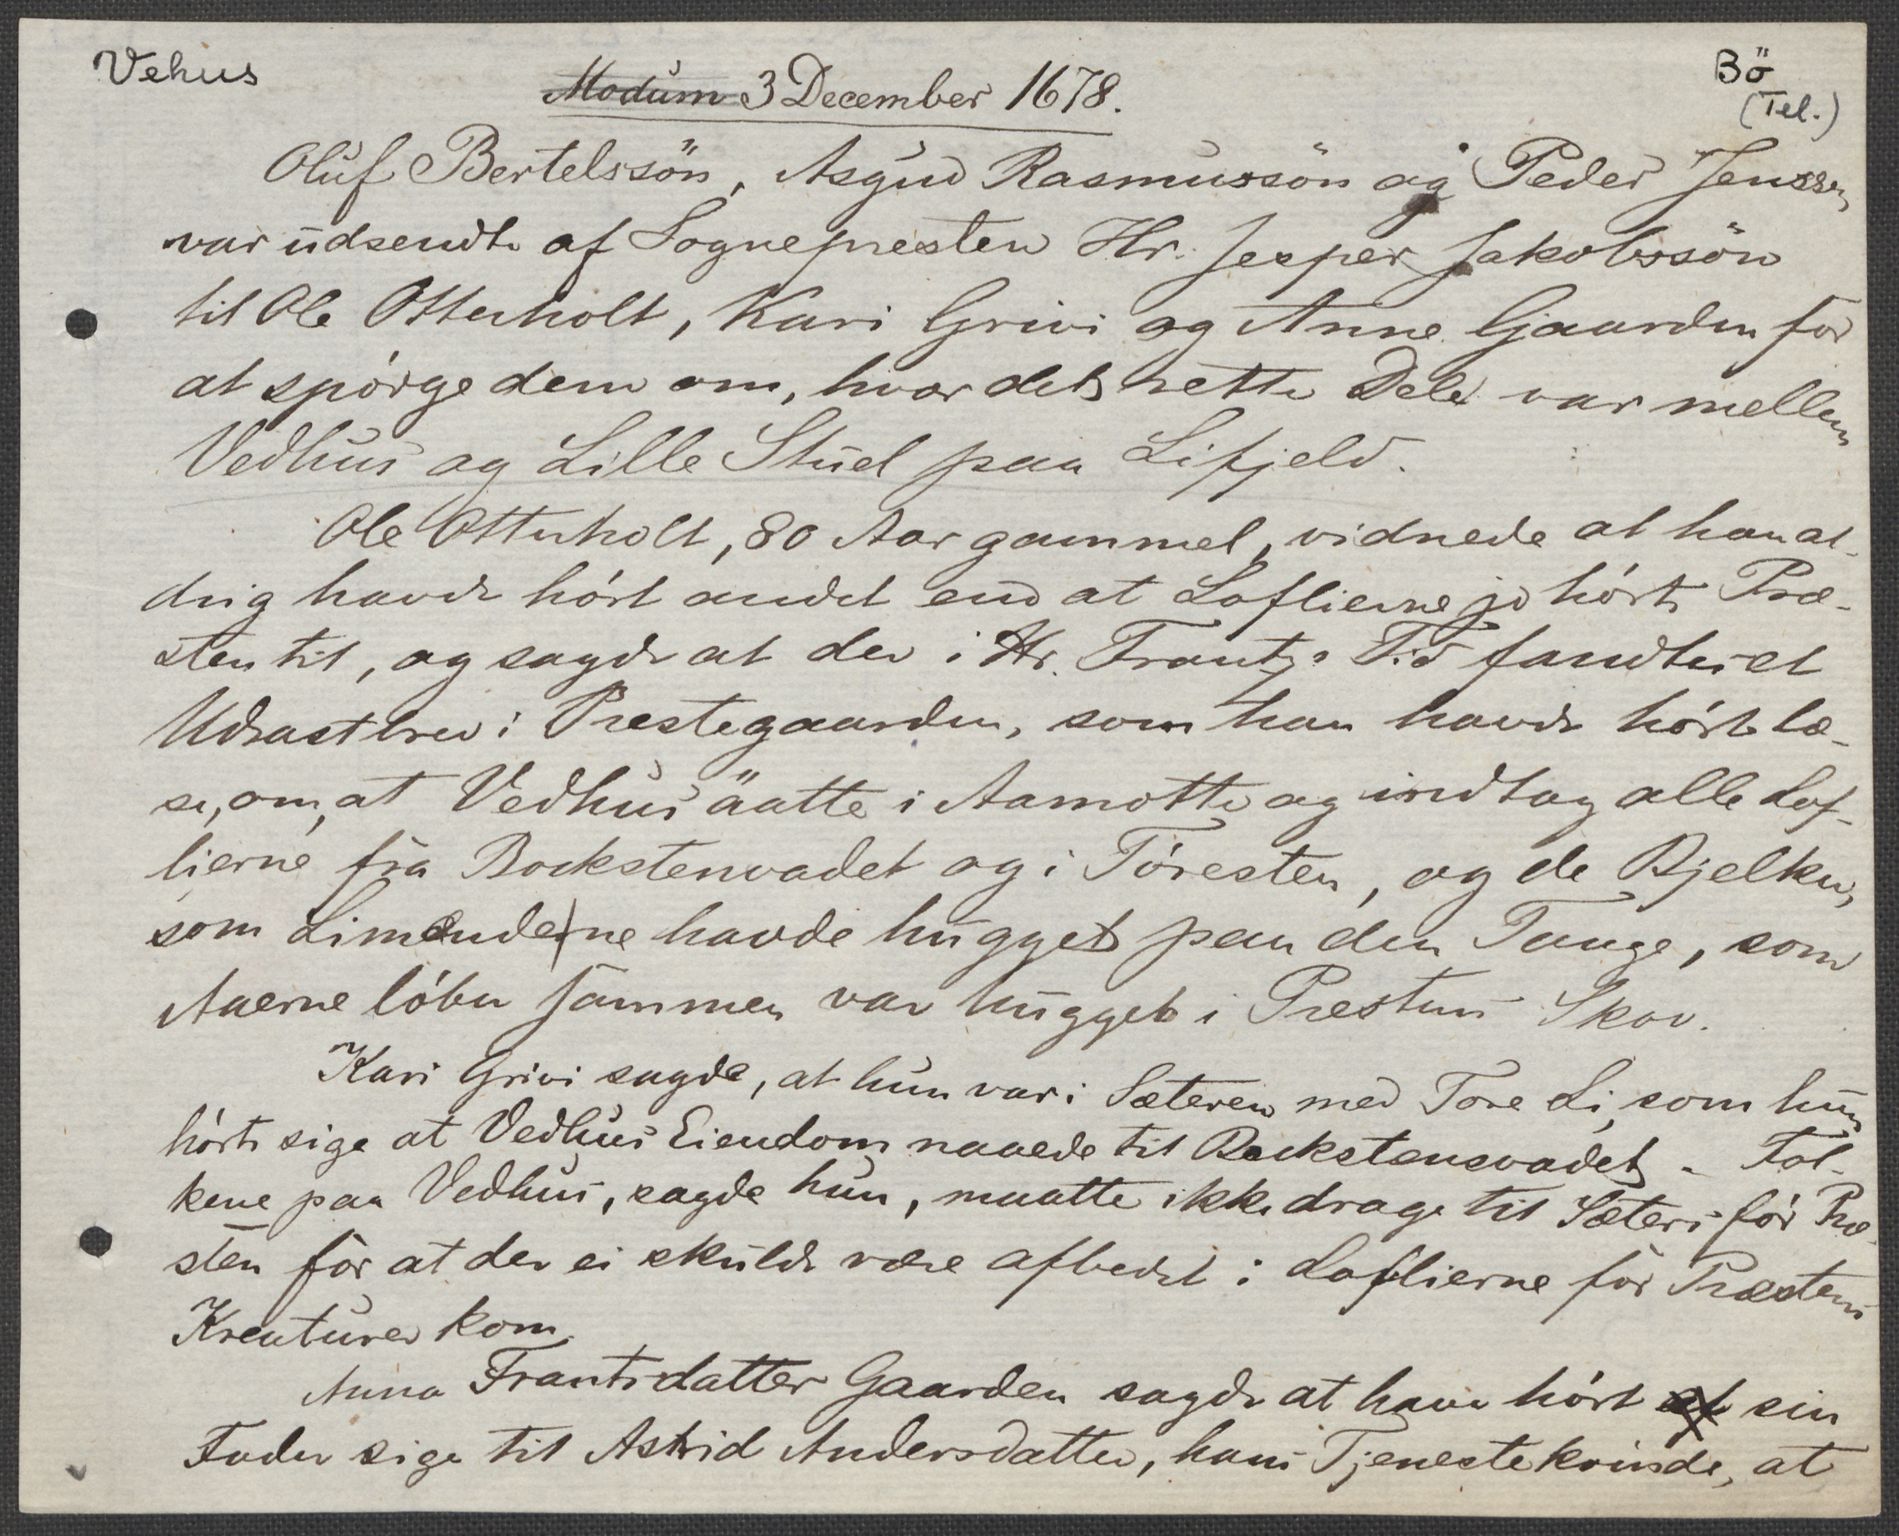 Vehus
Bö
(Tel.)
Modum 3 December 1678.
Oluf Bertelssön, Asgud Rasmussön og Peder Jenssen
var udsendte af Sognepresten Hr. Jesper Jakobssön
til Ole Otterholt, Kari Grivi og Anne Gjaarden for
at spörge dem om, hvor det rette Dele var mellem
Vedhus og Lille Stuel paa Lifjeld.
Ole Otterholt, 80 Aar gammel, vidnede at han al-
drig havde hört andet end at Loflierne jo hörte Præ-
sten til, og sagde at der i Hr. Frantz's Tid fandtes et
Udkastbrev i Prestegaarden, som han havde hört læ-
se, om, at Vedhus åatte i Aamotte og indtog alle Lof-
lierne fra Bockstenvadet og i Töresten, og de Bjelker,
som Limænderne havde hugget paa den Tange, som
Aaerne löber sammen var hugget i Prestens Skov.
Kari Grivi sagde, at hun var i Sæteren med Tore Li, som hun
hörte sige at Vedhus Eiendom naaede til Bockstensvadet. Fol-
kene paa Vedhus, sagde hun, maatte ikke drage til Sæters för Præ-
sten for at der ei skulde være afbedet i Loflierne för Præstens
Kreaturer kom.
Anna Frantsdatter Gaarden sagde at have hört af sin
Fader sige til Astrid Andersdatter, hans Tjenestekvinde, at